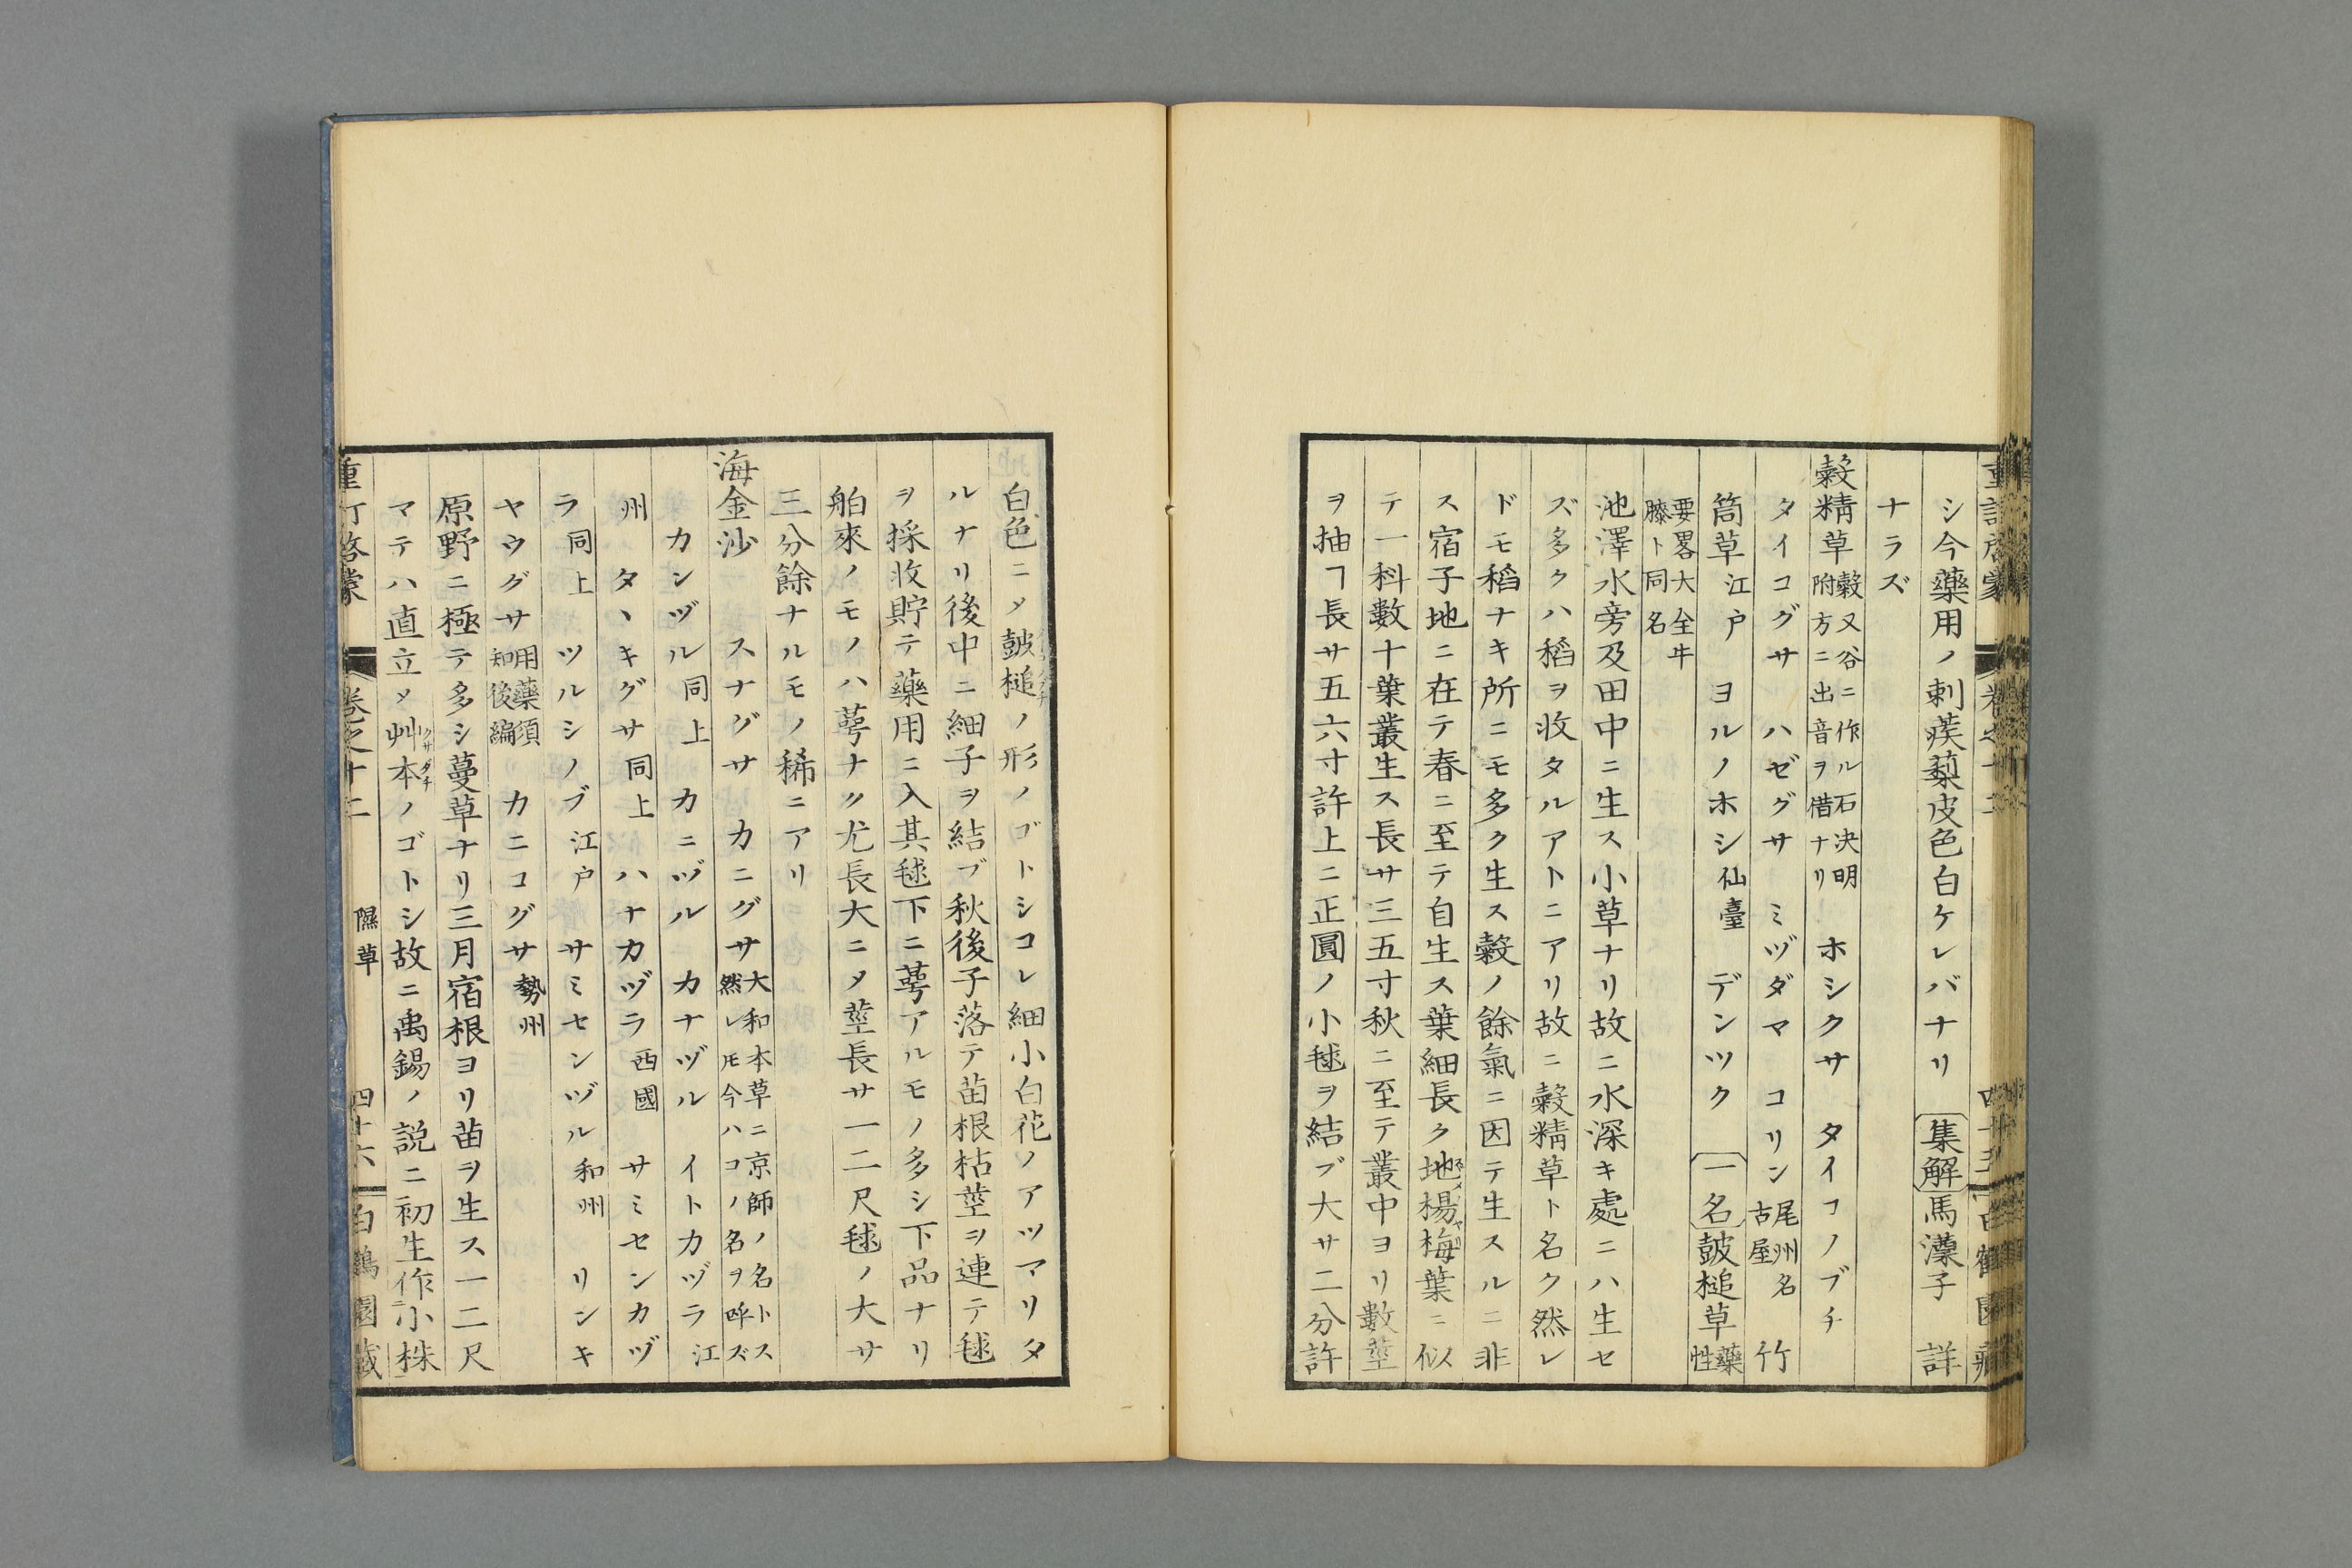 シ今藥用ノ刺蒺蔾皮色白ケレバナリ 集解 馬薸子 詳
ナラズ
穀精草 穀又谷ニ作ル石決明附方ニ出音ヲ借ナリ ホシクサ タイコノブチ
タイコグサ ハゼグサ ミヅダマ コリン 尾州名古屋 竹
筒草 江戸 ヨルノホシ 仙臺 デンツク 一名 皷槌草 藥性
要畧大全牛膝ト同名
池澤水旁及田中ニ生ス小草ナリ故ニ水深キ處ニハ生セ
ズ多クハ稻ヲ收タルアトニアリ故ニ穀精草ト名ク然レ
ドモ稻ナキ所ニモ多ク生ス穀ノ餘氣ニ因テ生スルニ非
ス宿子地ニ在テ春ニ至テ自生ス葉細長ク地楊梅葉ニ似
テ一科數十葉叢生ス長サ三五寸秋ニ至テ叢中ヨリ數莖
ヲ抽ヿ長サ五六寸許上ニ正圓ノ小毬ヲ結ブ大サ二分許
白色ニメ皷槌ノ形ノゴトシコレ細小白花ノアツマリタ
ルナリ後中ニ細子ヲ結ブ秋後子落テ苗根枯莖ヲ連テ毬
ヲ採收貯テ藥用ニ入其毬下ニ蕚アルモノ多シ下品ナリ
舶來ノモノハ蕚ナク尤長大ニメ莖長サ一二尺毬ノ大サ
三分餘ナルモノ稀ニアリ
海金沙 スナグサ カニグサ 大和本草ニ京師ノ名トス然レ𪜈今ハコノ名ヲ呼ズ
カンヅル 同上 カニヅル カナヅル イトカヅラ 江
州 タヽキグサ 同上 ハナカヅラ 西國 サミセンカヅ
ラ 同上 ツルシノブ 江戸 サミセンヅル 和州 リンキ
ヤウグサ 用藥須知後編 カニコグサ 勢州
原野ニ極テ多シ蔓草ナリ三月宿根ヨリ苗ヲ生ス一二尺
マテハ直立メ艸本ノゴトシ故ニ禹錫ノ説ニ初生作小株
重訂啓蒙 卷之十二 隰草 四十六 白鶴園藏